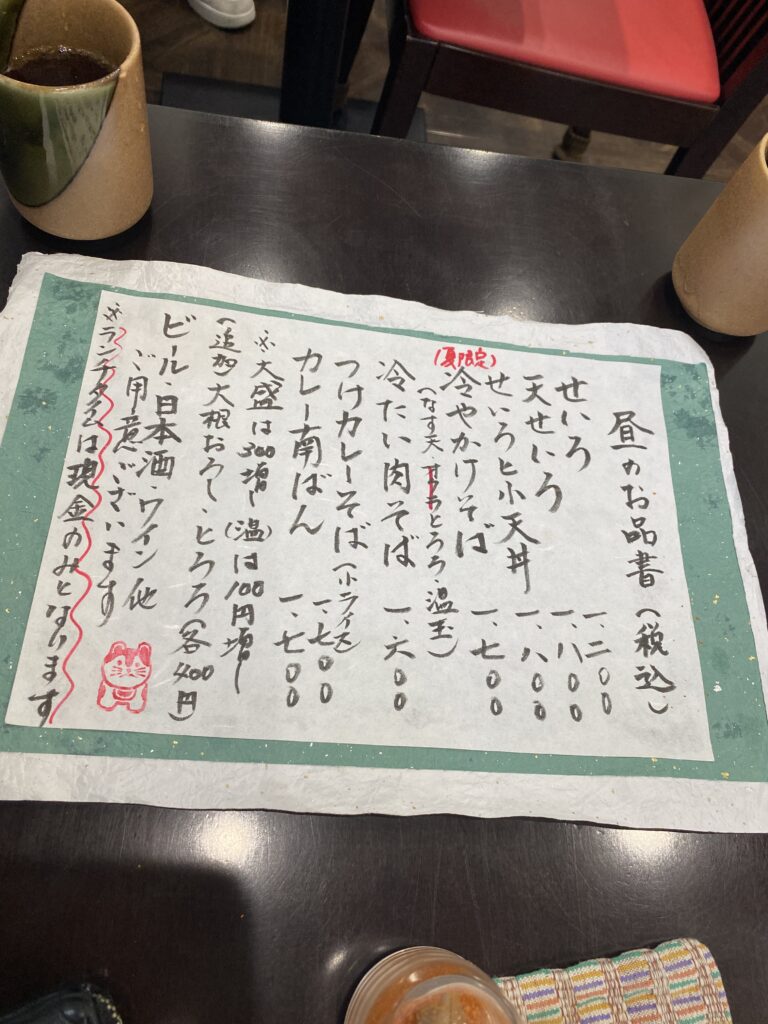 昼のお品書（税込）
せいろ 一、二〇〇
天せいろ 一、八〇〇
せいろと小天丼 一、八〇〇
（夏限定）
冷やかけそば 一、七〇〇
（なす天・とろろ・温玉）
冷たい肉そば 一、六〇〇
つけカレーそば（小ライス） 一、七〇〇
カレー南ばん 一、七〇〇
※大盛は300増し（温）は100円増し
（追加）大根おろし・とろろ（各400円）
ビール・日本酒・ワイン他
ご用意がございます
※ランチタイムは現金のみとなります